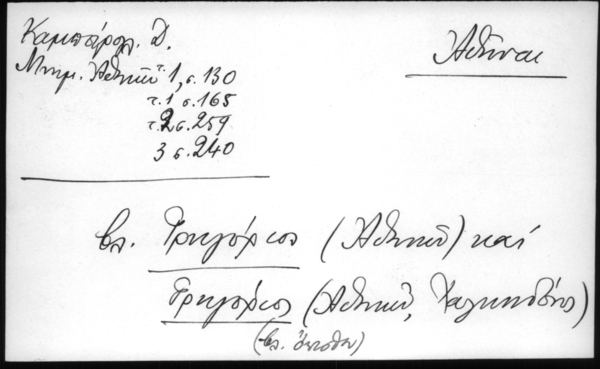 Καμπούρογλ. Δ.
Ἀθῆναι
Μνημ. Ἀθηνῶν τ. 1, σ. 130
τ. 1 σ. 165
τ. 2 σ. 259
3 σ. 240
βλ. Γρηγόριος (Ἀθηνῶν) καί
Γρηγόριος (Ἀθηνῶν, Χαλκηδόνος)
(βλ. ὄπισθεν)